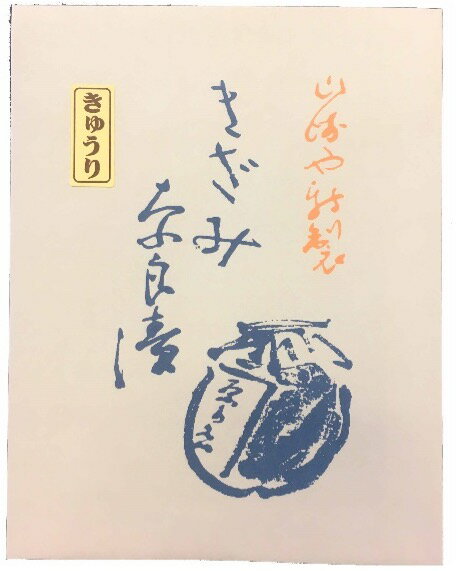 山崎や特製
きざみ
奈良漬
きゅうり